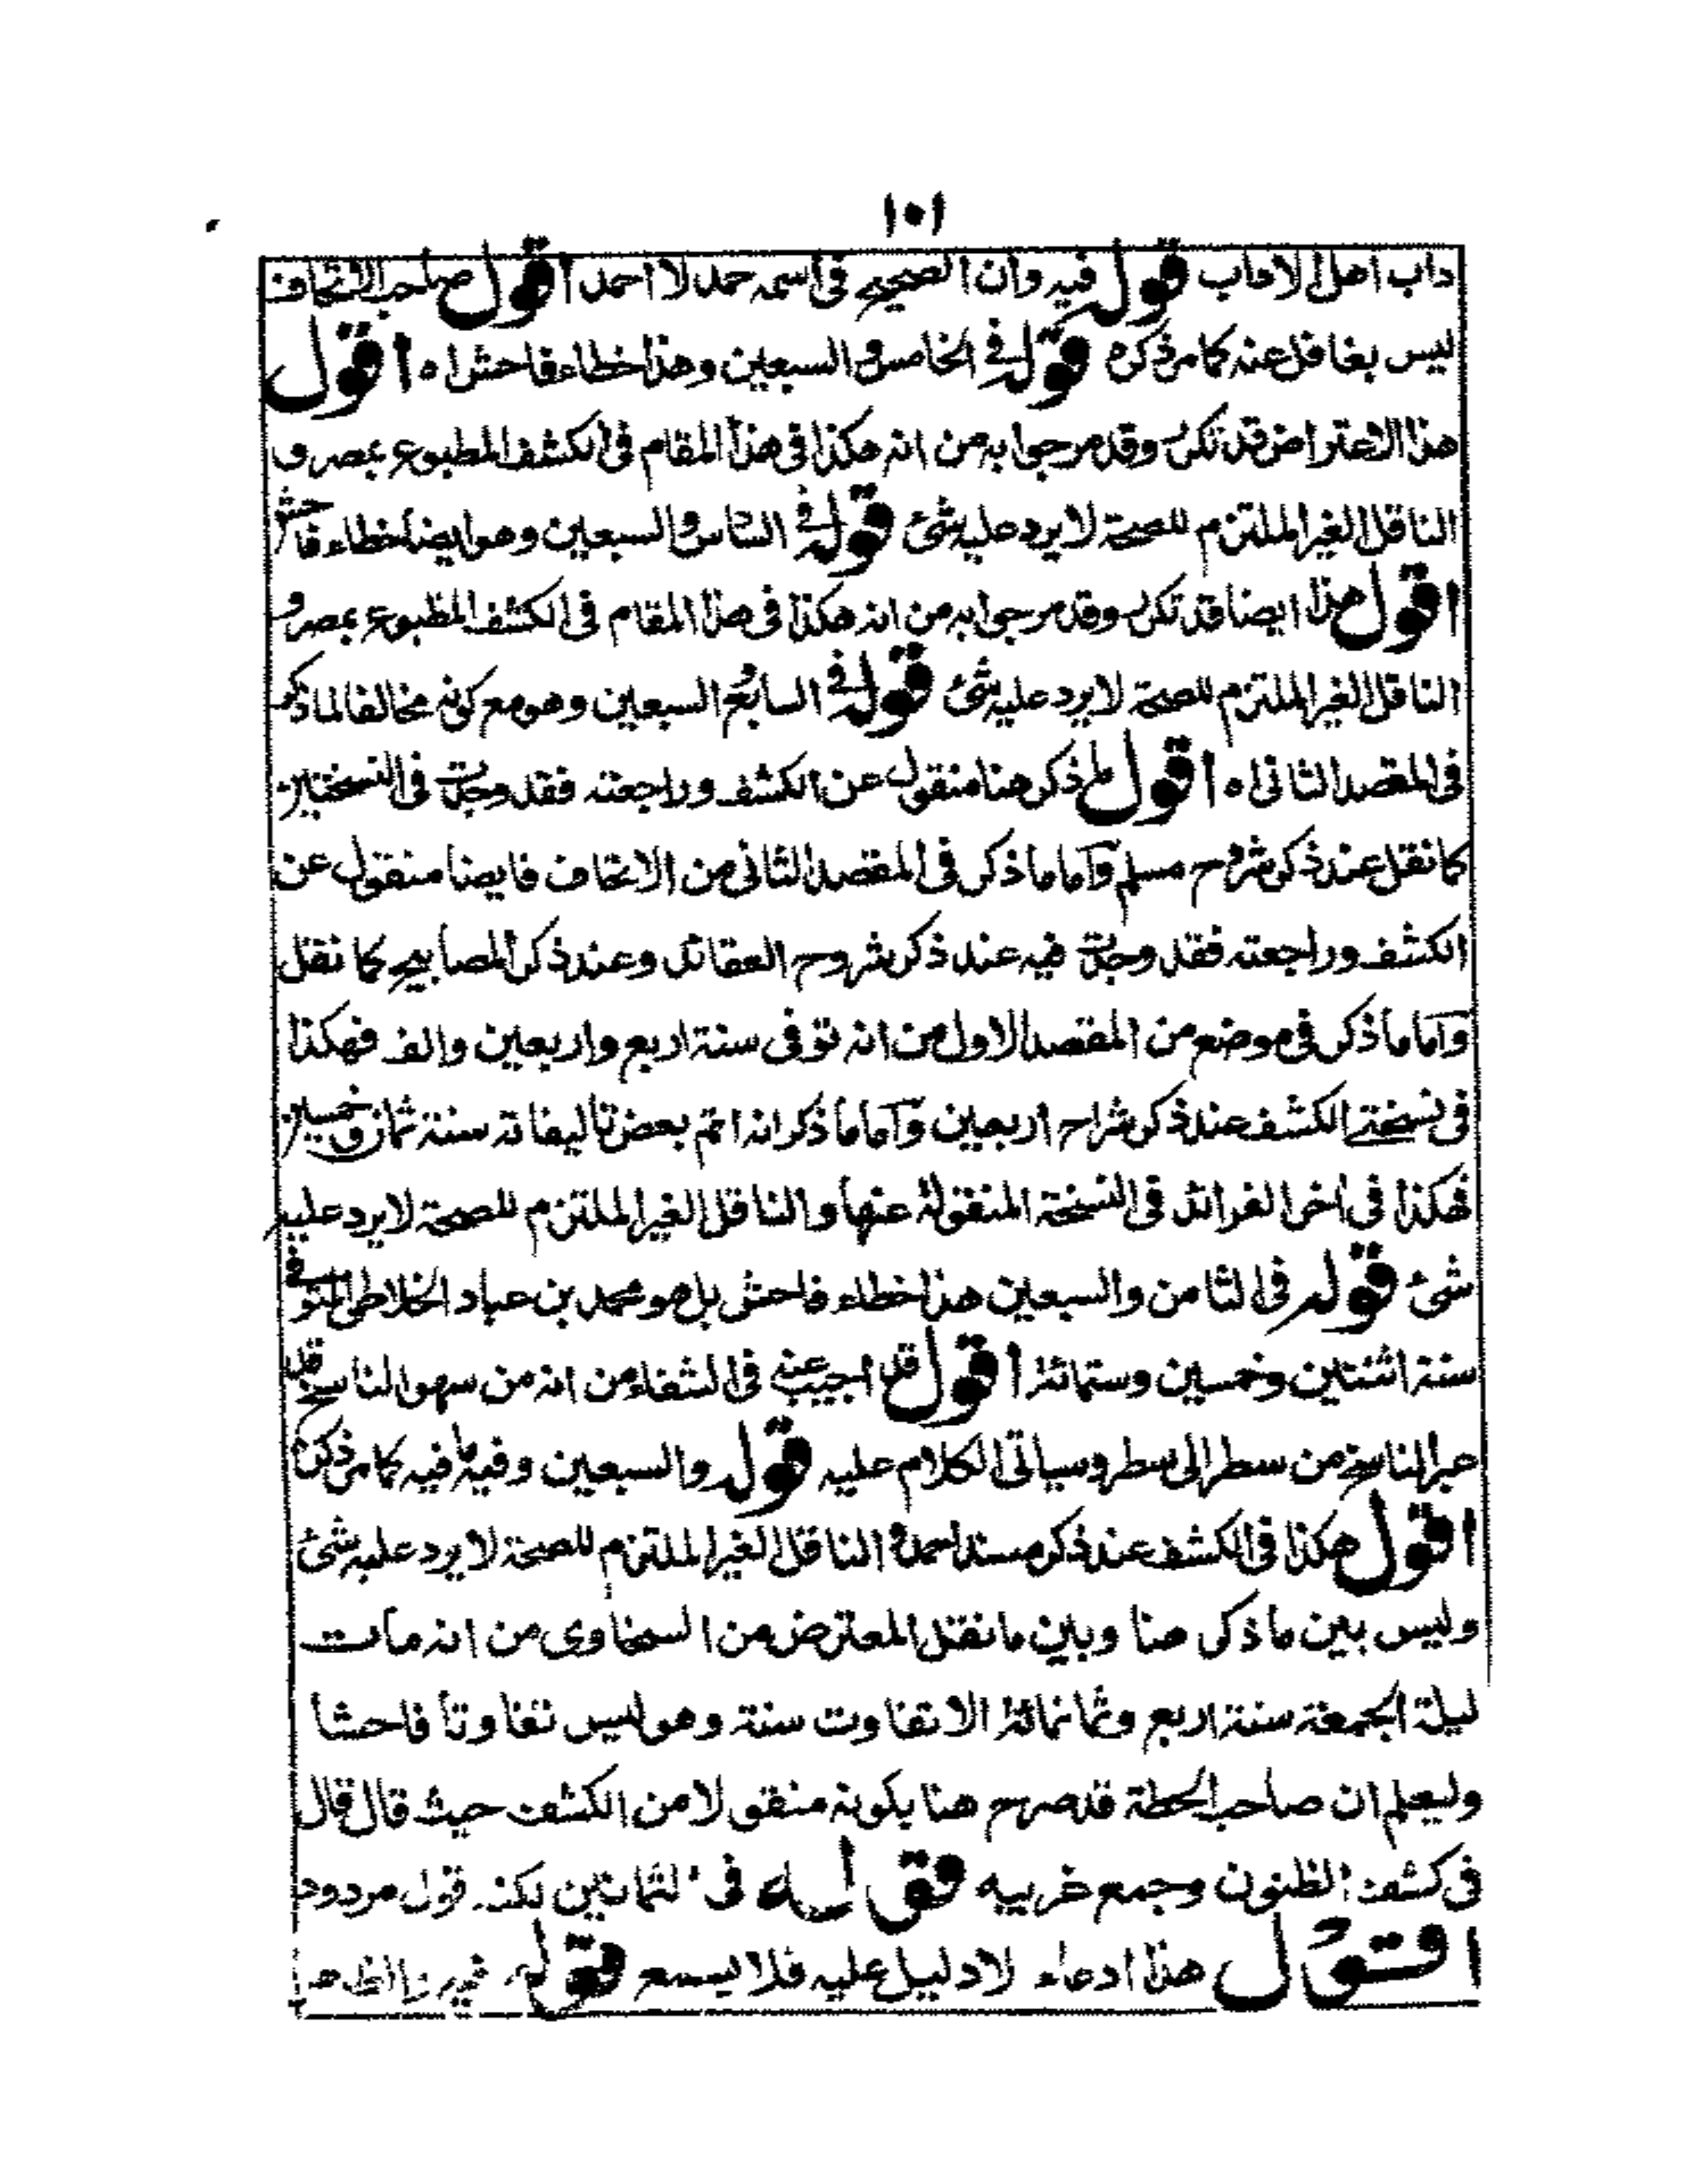 ١٠١
داب اهل الاداب قوله فيه وان الصحيح فى اسمه حمد لا احمد اقول صاحب الاتحاف
ليس بغافل عنه كما مر ذكره قوله فى الخامس والسبعين وهذا خطاء فاحش اه اقول
هذا الاعتراض قد تكرر وقد مر جوابه من انه هكذا فى هذا المقام فى الكشف المطبوع بمصر و
الناقل الغير الملتزم للصحة لا يرد عليه شئ قوله فى السادس والسبعين وهو ايضا خطاء فاحش
اقول هذا ايضا قد تكرر وقد مر جوابه من انه هكذا فى هذا المقام فى الكشف المطبوع بمصر و
الناقل الغير الملتزم للصحة لا يرد عليه شئ قوله فى السابع والسبعين وهو مع كونه مخالفا لما ذكر
فى المقصد الثانى اه اقول ما ذكر هنا منقول عن الكشف وراجعته فقد وجدت فى النسختين
كما نقل عند ذكر شروح مسلم واما ما ذكر فى المقصد الثانى من الاتحاف فايضا منقول عن
الكشف وراجعته فقد وجدت فيه عند ذكر شروح العقائد وعند ذكر المصابيح كما نقل
واما ما ذكر فى موضع من المقصد الاول من انه توفى سنة اربع واربعين والف فهكذا
فى نسختى الكشف عند ذكر شراح اربعين واما ما ذكر انه اتم بعض تاليفاته سنة ثمان وخمسين
فهكذا فى اخر الفرائد فى النسخة المنقولة عنها والناقل الغير الملتزم للصحة لا يرد عليه
شئ قوله فى الثامن والسبعين هذا خطاء فاحش بل هو محمد بن عباد الخلاطى المتوفى
سنة اثنتين وخمسين وستمائة اقول قد اجيب عنه فى الشفاء من انه من سهو الناسخ قد
عبر الناسخ من سطر الى سطر وسياتى الكلام عليه قوله والسبعين وفيه ما فيه كما مر ذكره
اقول هكذا فى الكشف عند ذكر مسند احمد والناقل الغير الملتزم للصحة لا يرد عليه شئ
وليس بين ما ذكر هنا وبين ما نقل المعترض من السخاوى من انه مات
ليلة الجمعة سنة اربع وثمانمائة الا تفاوت سنة وهو ليس تفاوتا فاحشا
وليعلم ان صاحب الحطة قد صرح هنا بكونه منقولا من الكشف حيث قال قال
فى كشف الظنون وجمع غريبه قوله فى الثمانين لكنه قول مردود
اقول هذا ادعاء لا دليل عليه فلا يسمع قوله